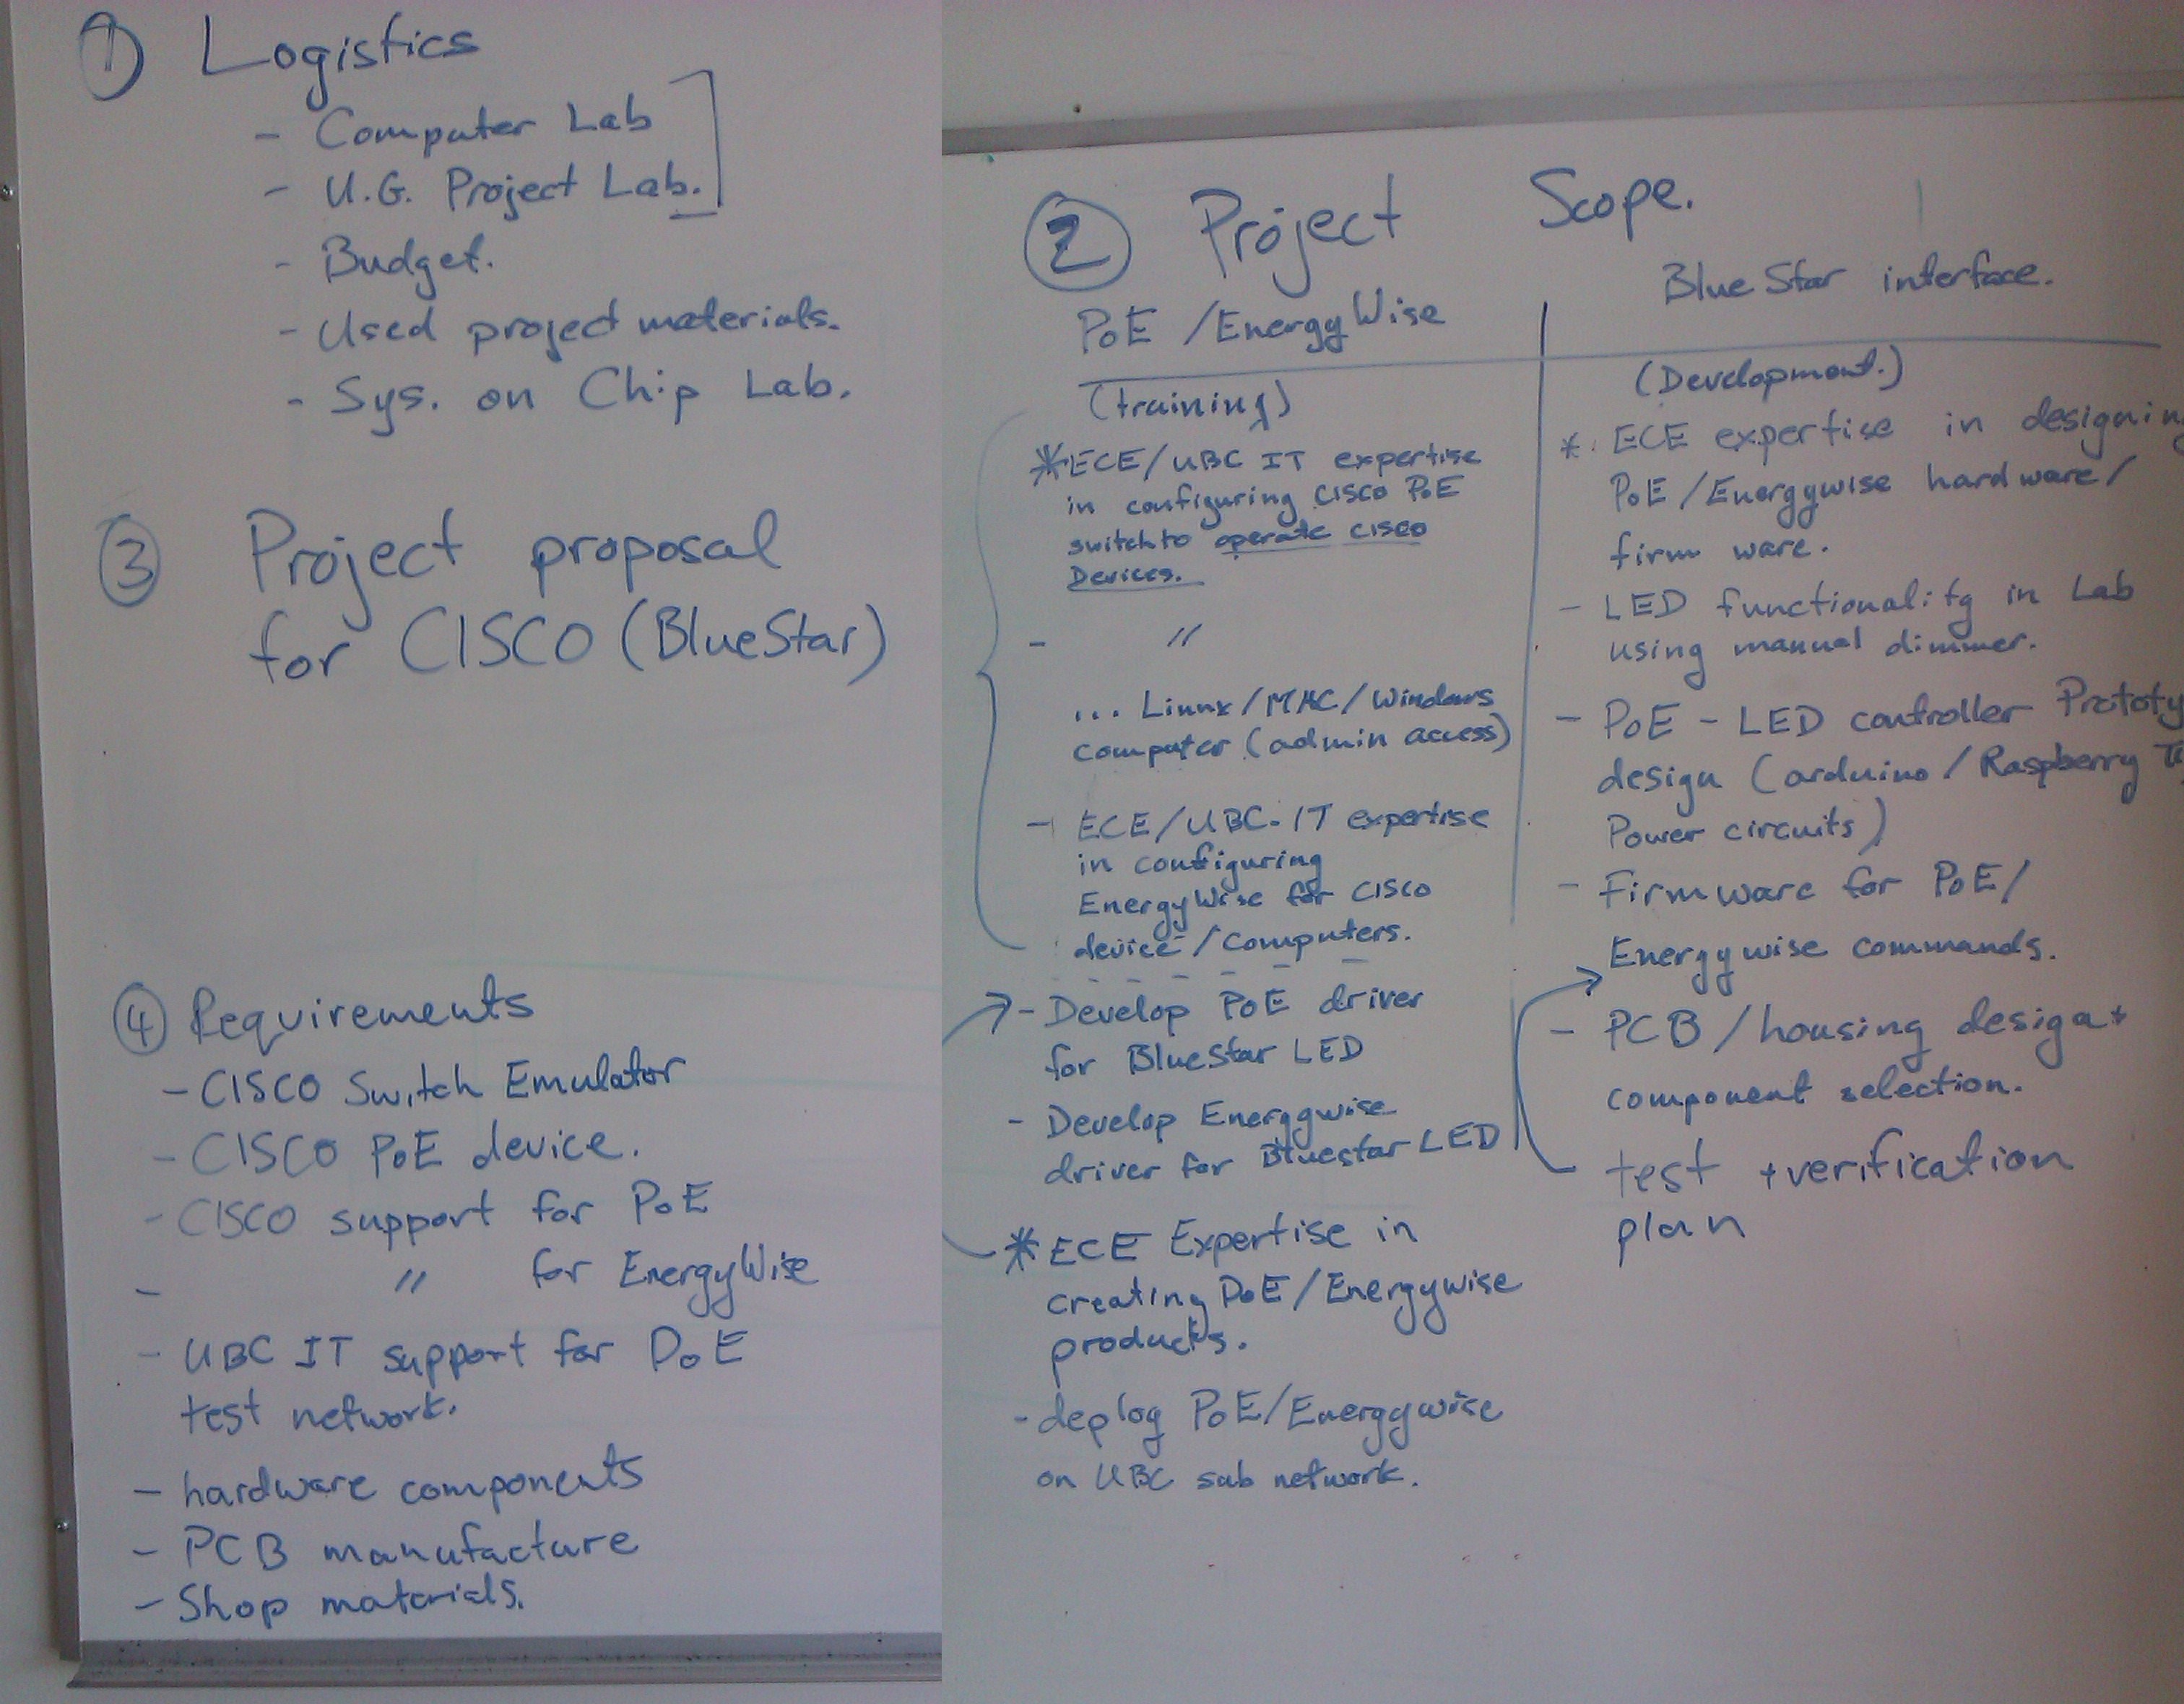 ① Logistics
- Computer Lab
- U.G. Project Lab.
- Budget.
- Used project materials.
- Sys. on Chip Lab.
③ Project proposal
for CISCO (BlueStar)
④ Requirements
- CISCO Switch Emulator
- CISCO PoE device.
- CISCO support for PoE
- " for EnergyWise
- UBC IT support for PoE
test network.
- hardware components
- PCB manufacture
- Shop materials.
② Project Scope.
PoE / EnergyWise
(training)
* ECE/UBC IT expertise
in configuring CISCO PoE
switch to operate cisco
Devices.
- "
... Linux/MAC/Windows
computer (admin access)
- ECE/UBC IT expertise
in configuring
EnergyWise for CISCO
device/computers.
- Develop PoE driver
for BlueStar LED
- Develop Energywise
driver for Bluestar LED
* ECE Expertise in
creating PoE/Energywise
products.
- deploy PoE/Energywise
on UBC sub network.
BlueStar interface.
(Development.)
* ECE expertise in designing
PoE/Energywise hardware/
firm ware.
- LED functionality in Lab
using manual dimmer.
- PoE - LED controller Prototy
design (arduino/Raspberry
Power circuits)
- Firmware for PoE/
Energywise commands.
- PCB/housing design +
component selection.
test + verification
plan